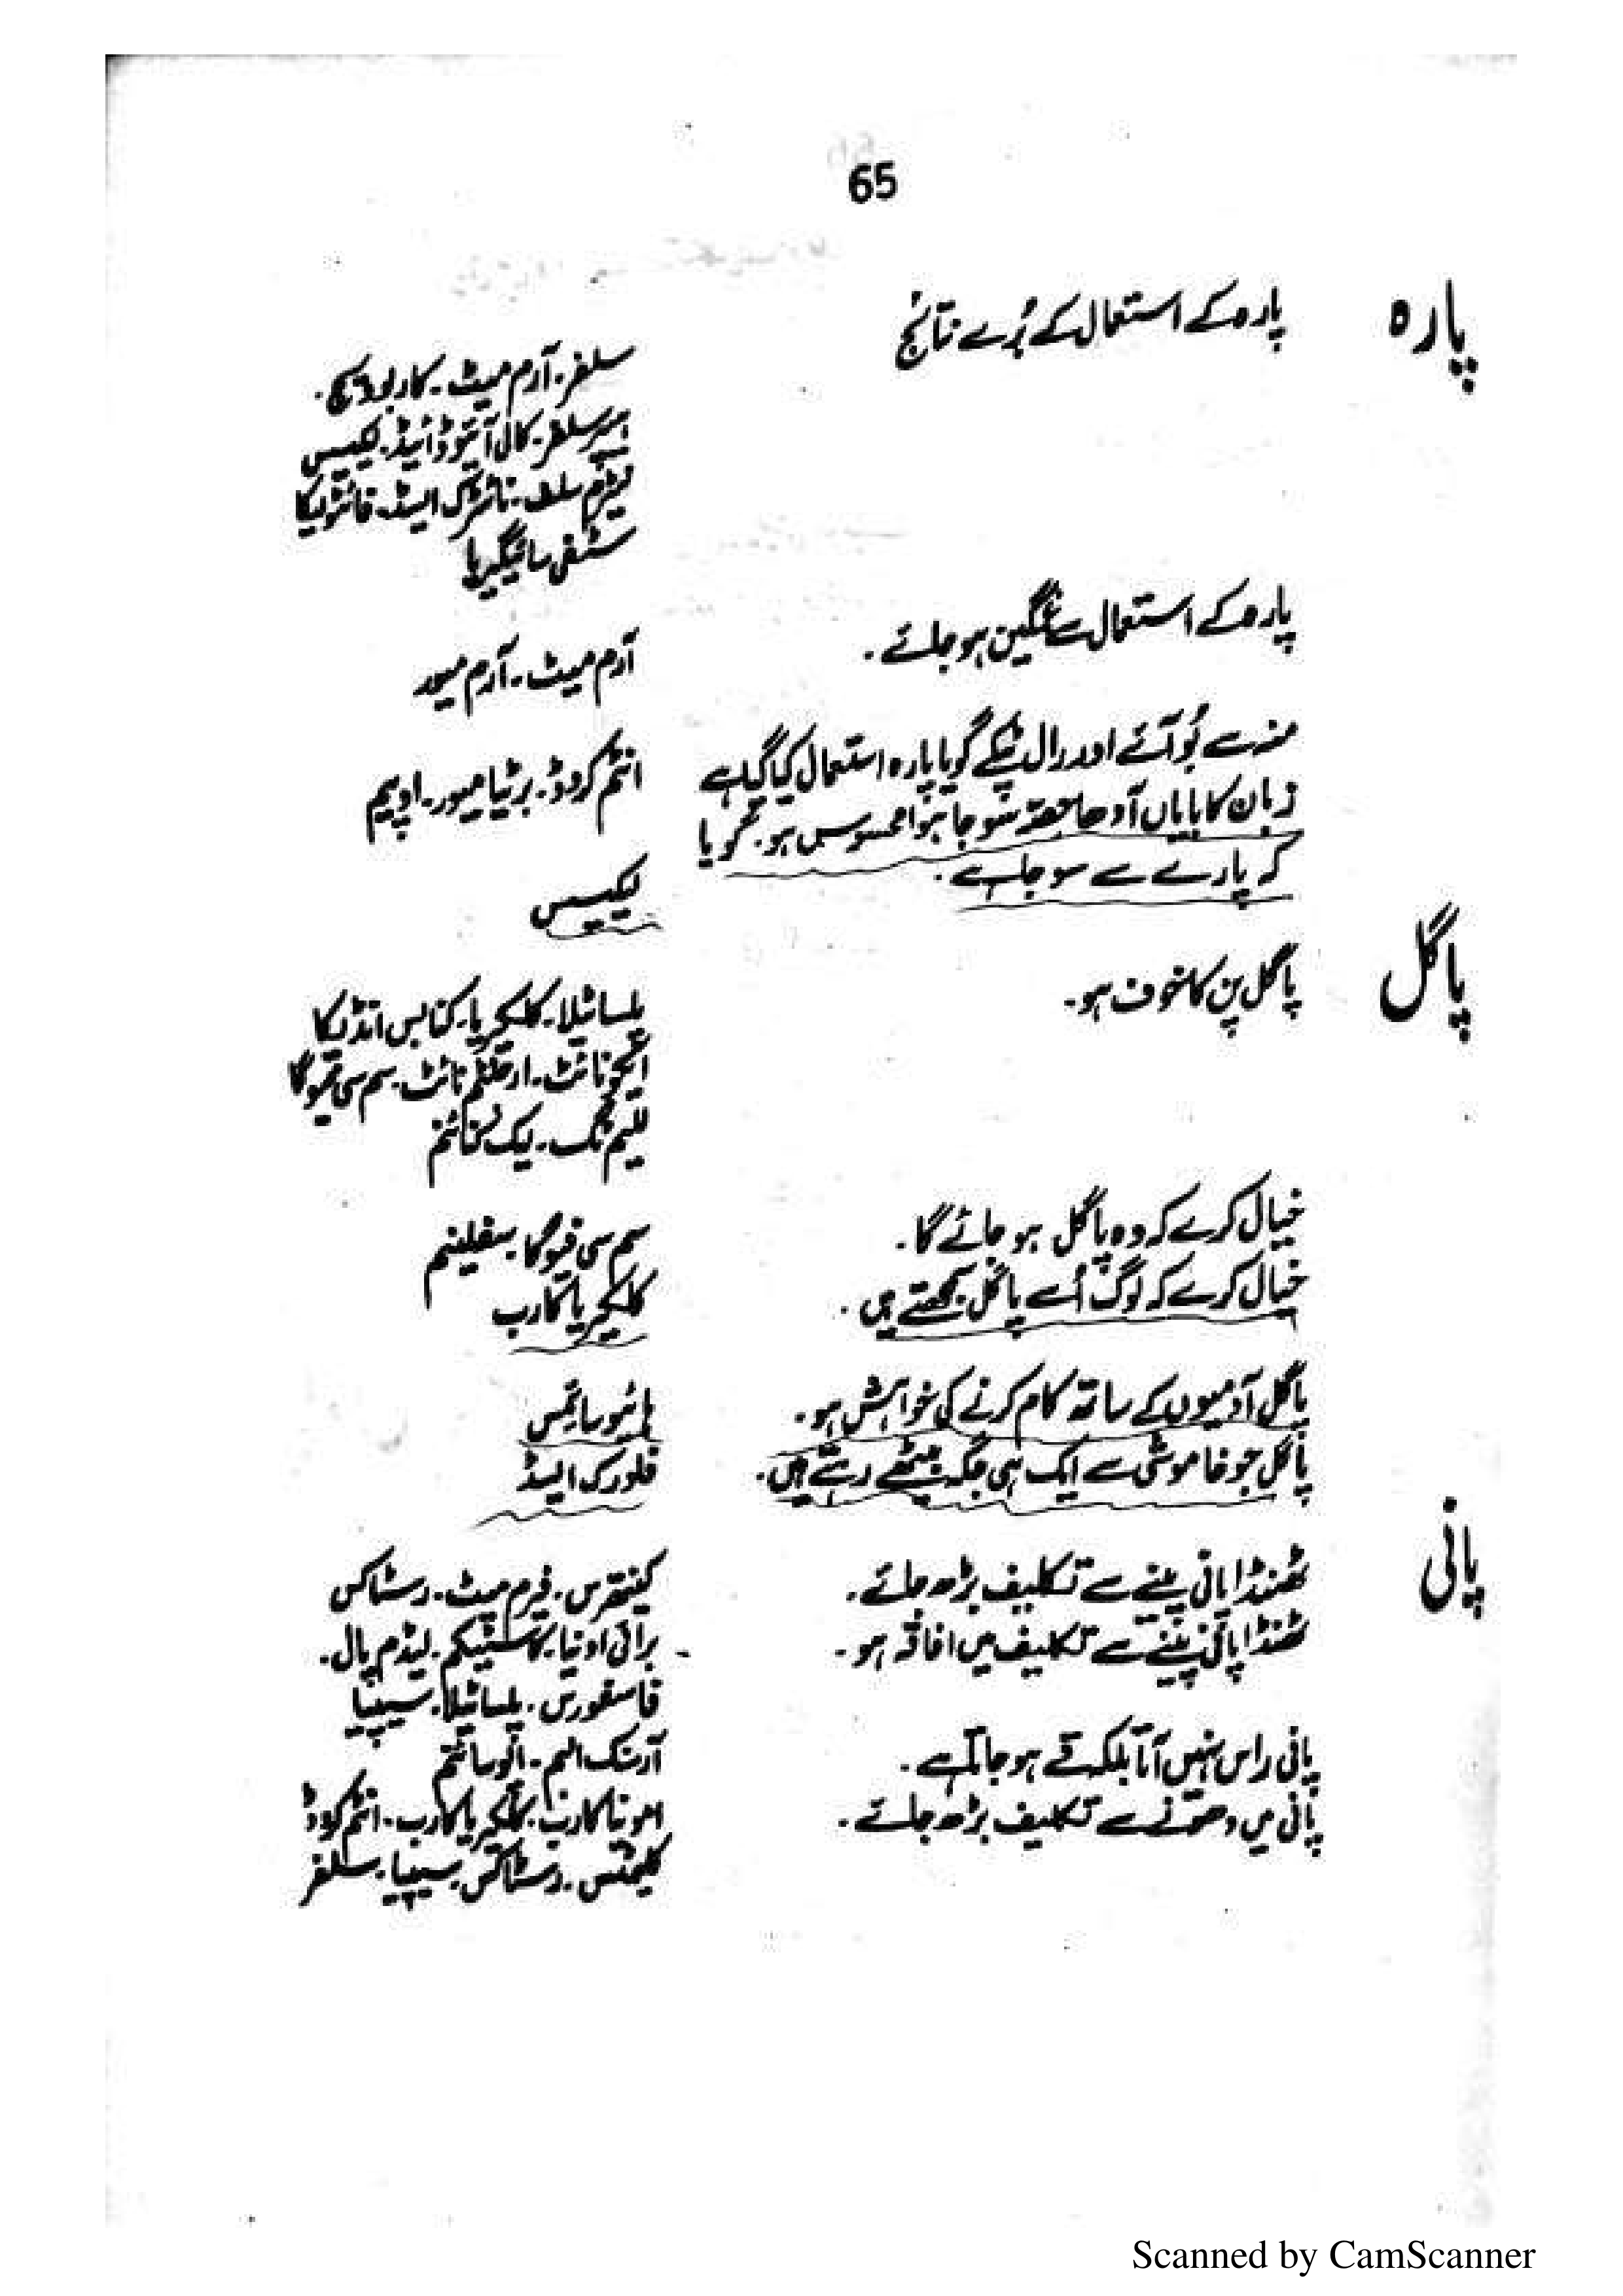 65
پارہ
پارہ کے استعمال کے بُرے نتائج
سلفر۔ آرم میٹ۔ کاربو ویج۔
ہیپر سلفر۔ کالی آئیوڈائیڈ۔ لیکیسس
نیٹرم سلف۔ نائٹرک ایسڈ۔ فائٹولیکا
سٹفی سائیگیریا
پارہ کے استعمال سے غمگین ہو جائے۔
آرم میٹ۔ آرم میور
منہ سے بُو آئے اور رال ٹپکے گویا پارہ استعمال کیا گیا ہے
انٹم کروڈ۔ برٹیا میور۔ اوپیم
زبان کا بایاں آدھا حصہ سوجا ہوا محسوس ہو۔ گویا
کہ پارے سے سوجا ہے۔
لیکیسس
پاگل
پاگل پن کا خوف ہو۔
پلساٹیلا۔ کلکیریا۔ کنابس انڈیکا
ایکونائٹ۔ ارجنٹم نائٹ۔ سم سی فیوگا
للیم ٹگ۔ لیک کنائنم
خیال کرے کہ وہ پاگل ہو جائے گا۔
سم سی فیوگا۔ سفلینم
خیال کرے کہ لوگ اُسے پاگل سمجھتے ہیں۔
کلکیریا کارب
پاگل آدمیوں کے ساتھ کام کرنے کی خواہش ہو۔
ہائیوسائمس
پاگل جو خاموشی سے ایک ہی جگہ بیٹھے رہتے ہیں۔
فلورک ایسڈ
پانی
ٹھنڈا پانی پینے سے تکلیف بڑھ جائے۔
کینتھرس۔ فیرم میٹ۔ رسٹاکس
ٹھنڈا پانی پینے سے تکلیف میں افاقہ ہو۔
برائی اونیا۔ کاسٹیکم۔ لیڈم پال۔
فاسفورس۔ پلساٹیلا۔ سیپیا
پانی راس نہیں آتا بلکہ قے ہو جاتا ہے۔
آرسنک البم۔
پانی میں دھونے سے تکلیف بڑھ جائے۔
امونیا کارب۔ کلکیریا کارب۔ انٹم کروڈ
کلیمٹس۔ رسٹاکس۔ سیپیا۔ سلفر
Scanned by CamScanner